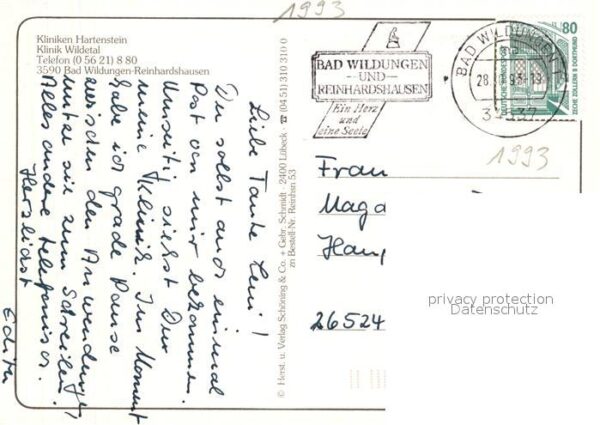 1993
Kliniken Hartenstein
Klinik Wildetal
Telefon (0 56 21) 8 80
3590 Bad Wildungen-Reinhardshausen
BAD WILDUNGEN
UND
REINHARDSHAUSEN
Ein Herz
und
eine Seele
BAD WILDUNGEN 1
28
-19
DEUTSCHE BUNDESPOST
80
ZECHE ZOLLERN II DORTMUND
1993
Liebe Tante Leni!
Du sollst auch einmal
Post von mir bekommen.
Umseitig siehst Du
meine Klinik. Im Moment
habe ich grade Pause
zwischen den Anwendungen,
nutze sie zum Schreiben.
Alles andere telefonisch.
Herzlichst
Edith
© Herst. u. Verlag Schöning & Co. + Gebr. Schmidt · 2400 Lübeck · ☎ (0451) 310 310 0
zn Bestell-Nr. Reinhsn 53
Frau
Maga
26524
privacy protection
Datenschutz